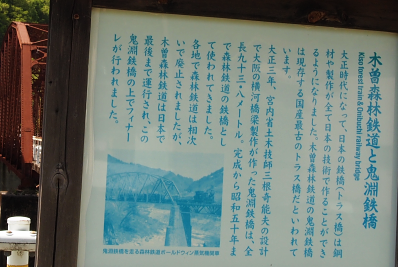 木曽森林鉄道と鬼淵鉄橋
Kiso forest train & Onibuchi railway bridge
大正時代になって、日本の鉄橋(トラス橋)は鋼
材や製作が全て日本の技術で作ることができ
るようになりました。木曽森林鉄道の鬼淵鉄橋
は現存する国産最古のトラス橋だといわれて
います。
大正三年、宮内省土木技師三根奇能夫の設計
で大阪の横河橋梁製作が作った鬼淵鉄橋は、全
長九十三・八メートル。完成から昭和五十年ま
で森林鉄道の鉄橋とし
て使われてきました。
各地で森林鉄道は相次
いで廃止されましたが、
木曽森林鉄道は日本で
最後まで運行され、この
鬼淵鉄橋の上でフィナー
レが行われました。
鬼淵鉄橋を渡る森林鉄道ボールドウィン蒸気機関車